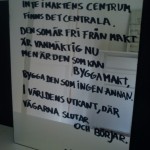 INTE I MAKTENS CENTRUM
FINNS DET CENTRALA.
DEN SOM ÄR FRI FRÅN MAKT
ÄR VANMÄKTIG NU
MEN ÄR DEN SOM KAN
BYGGA MAKT,
BYGGA DEN SOM INGEN ANNAN.
I VÄRLDENS UTKANT, DÄR
VÄGARNA SLUTAR
OCH BÖRJAR.